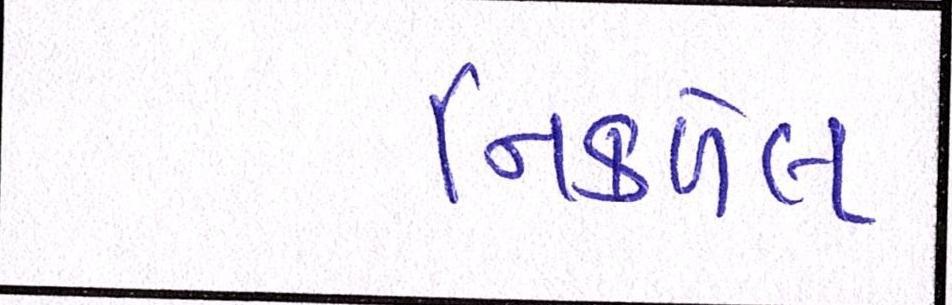 નિકળેલ